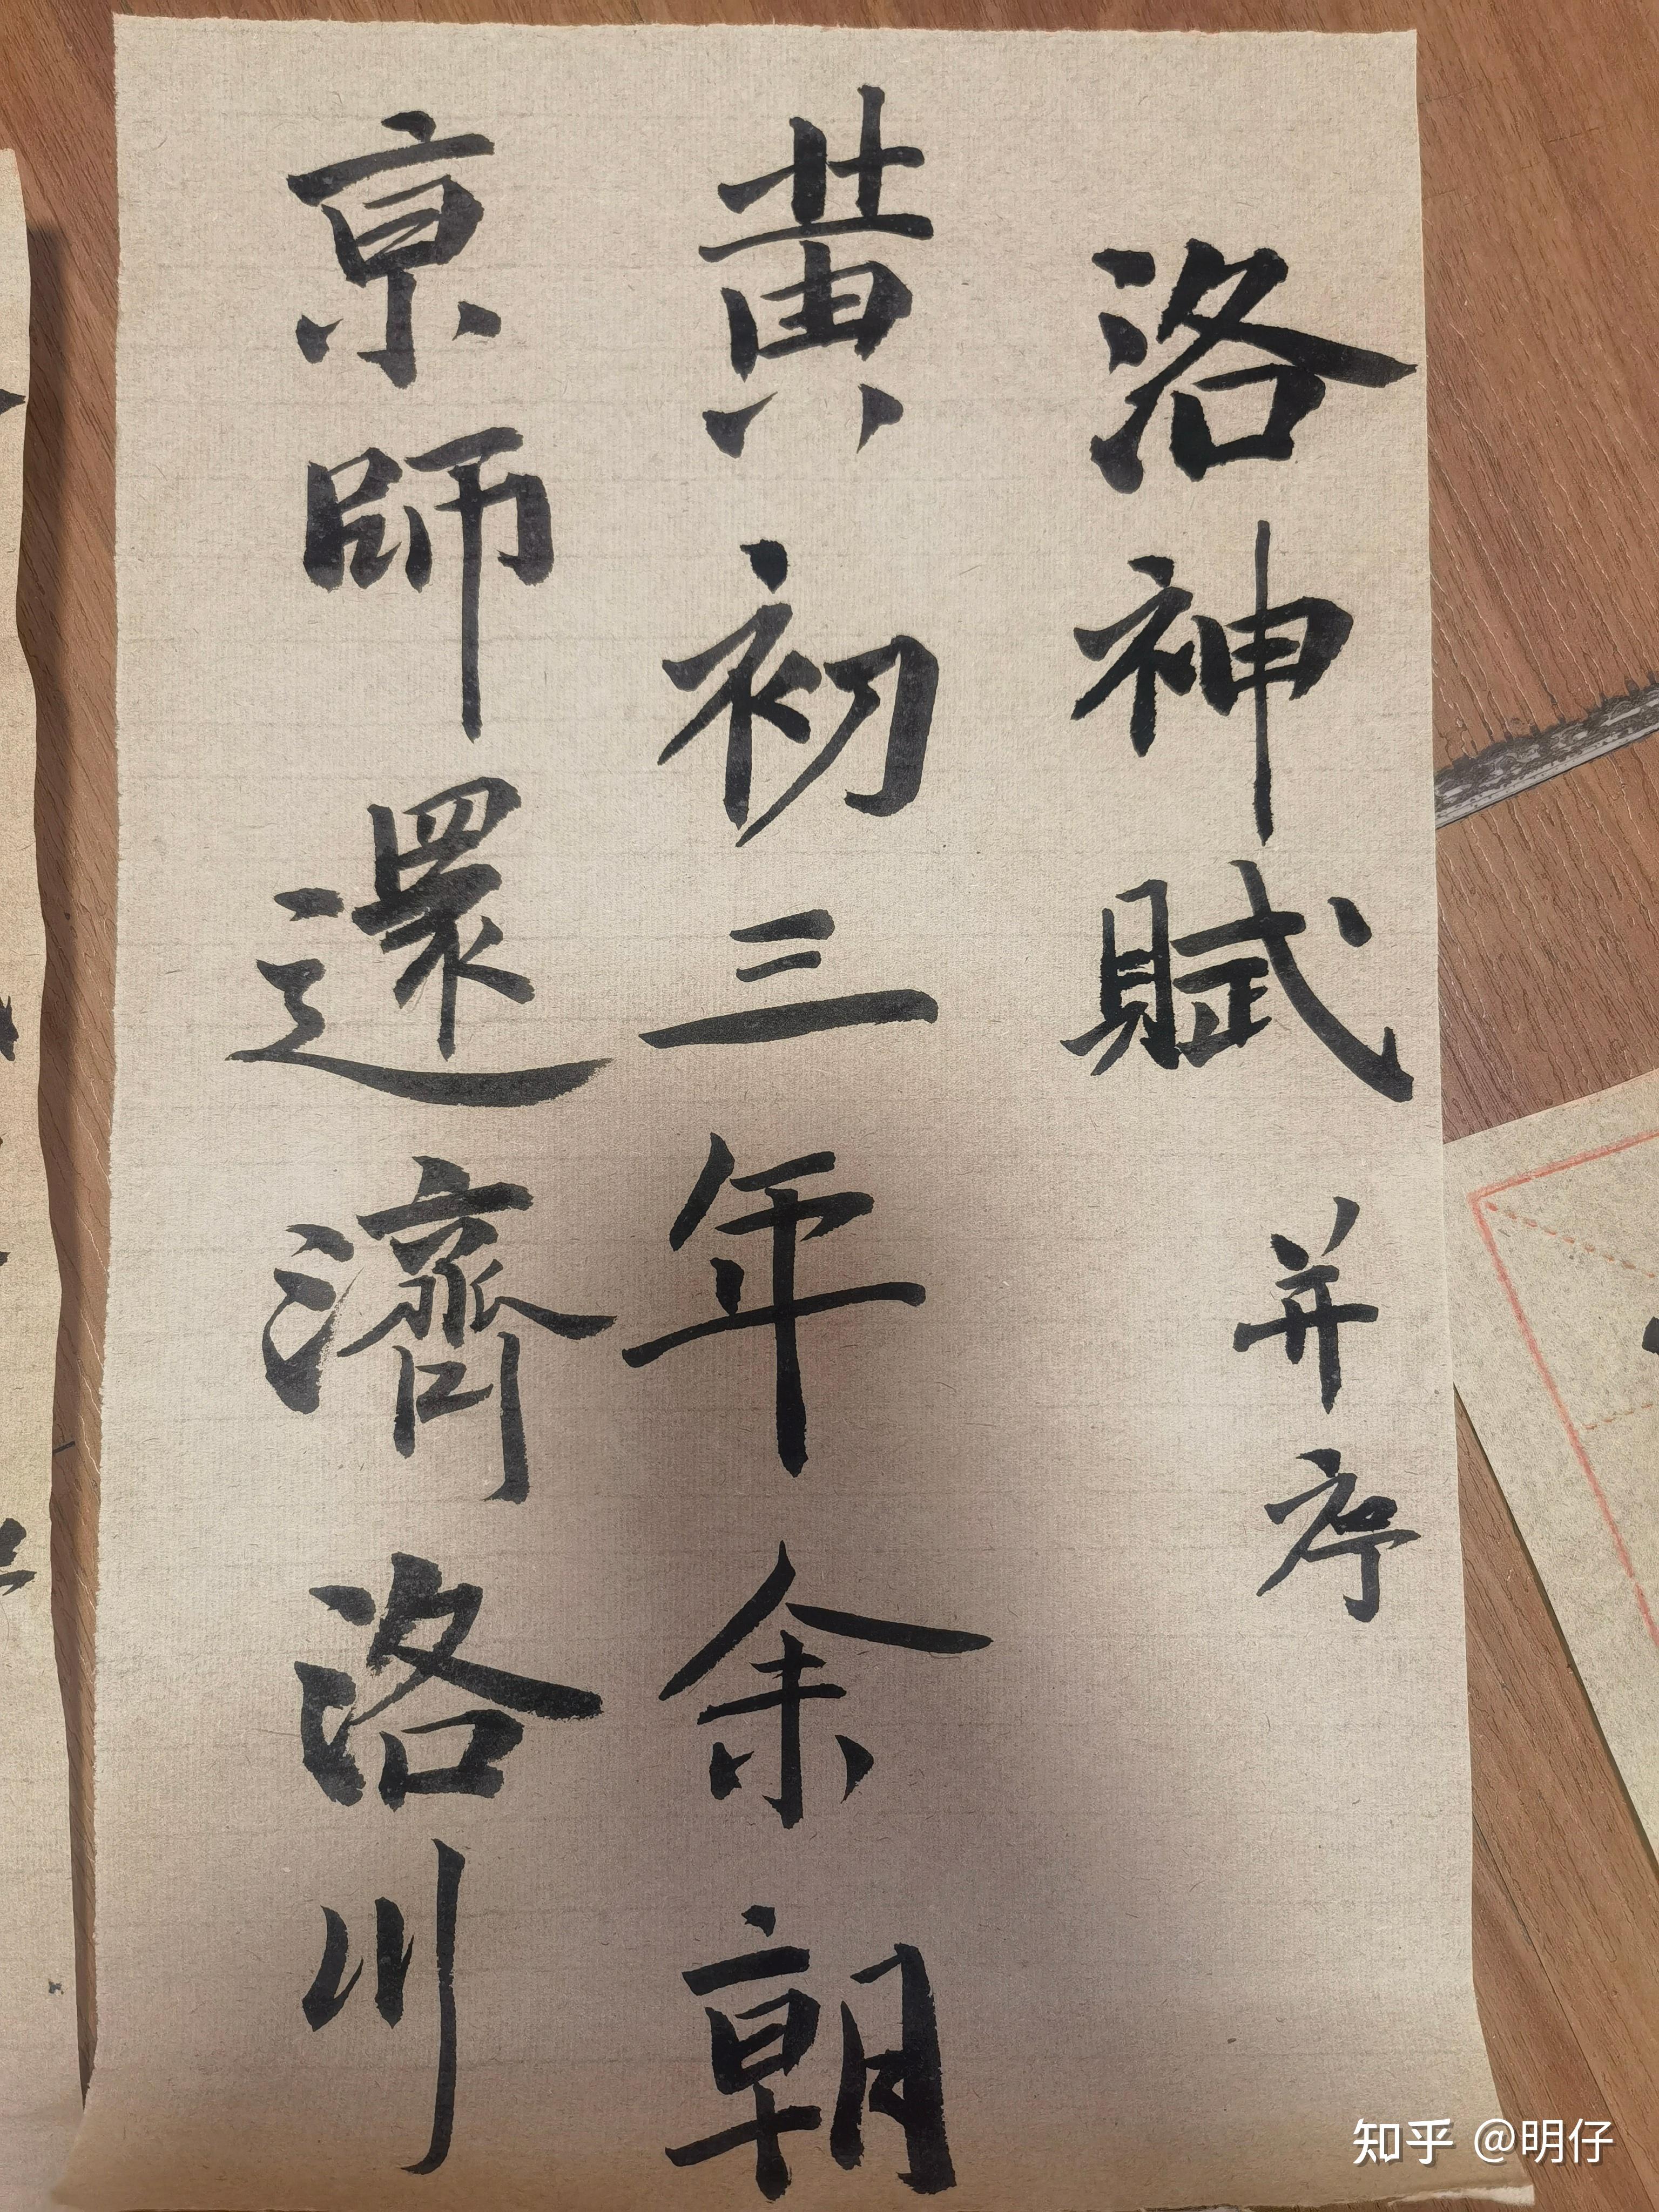 洛神賦 并序
黄初三年余朝
京師還濟洛川
知乎 @明仔